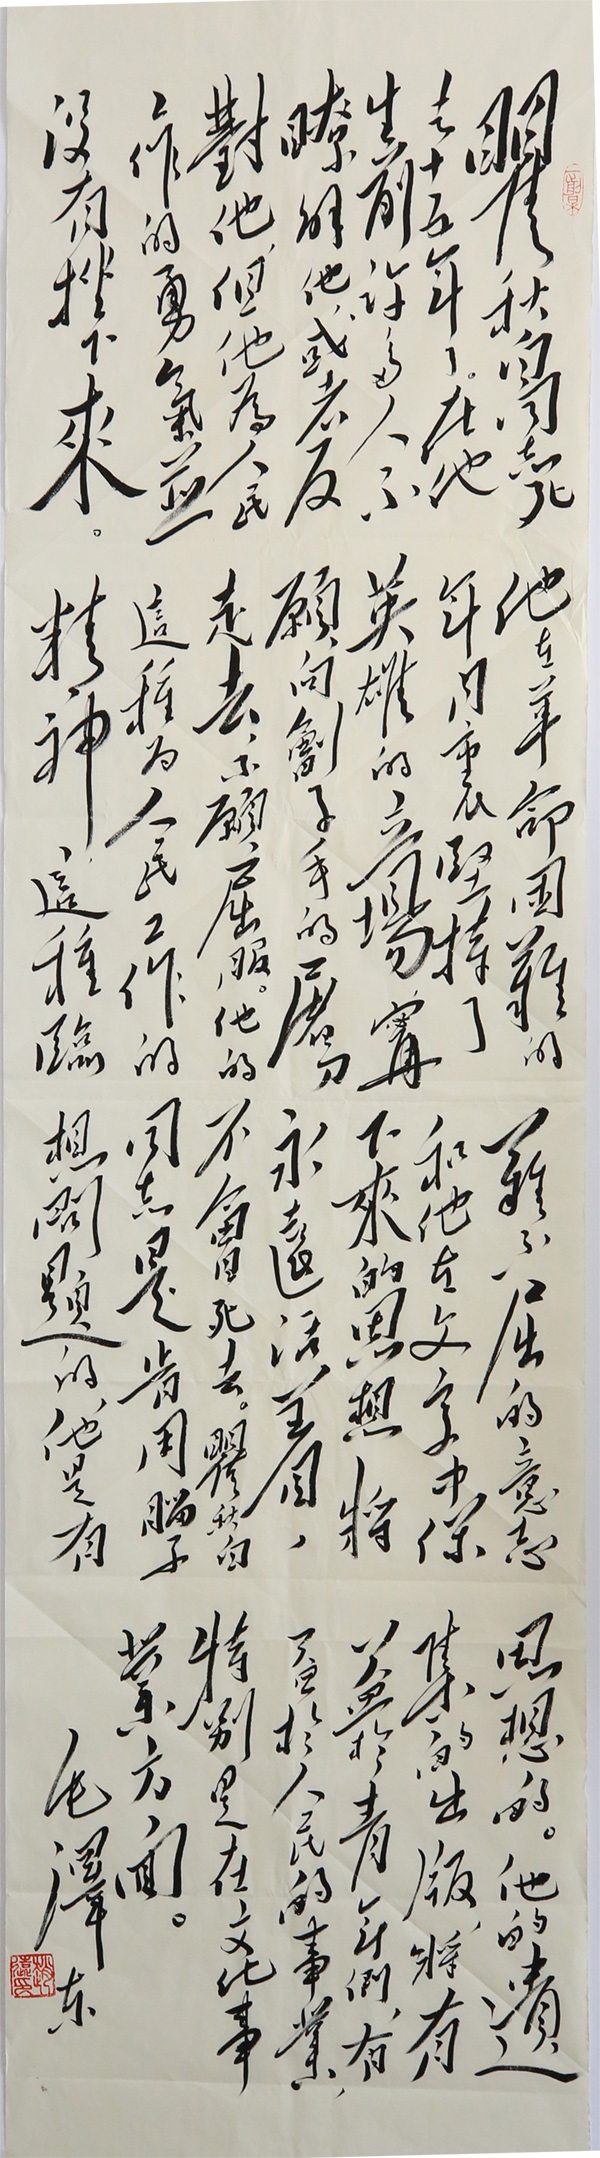 瞿秋白同志死
去十五年了。在他
生前許多人不
瞭解他,或者反
對他,但他為人民
工作的勇氣並
沒有挫下來。
他在革命困難的
年月裏堅持了
英雄的立場,寧
願向劊子手的屠刀
走去,不願屈服。他的
這種為人民工作的
精神,這種臨
難不屈的意志
和他在文字中保
下來的思想,將
永遠活着,
不會死去。瞿秋白
同志是肯用腦子
想問題的,他是有
思想的。他的遺
集的出版,將有
益於青年們,有
益於人民的事業,
特別是在文化事
業方面。
毛澤東